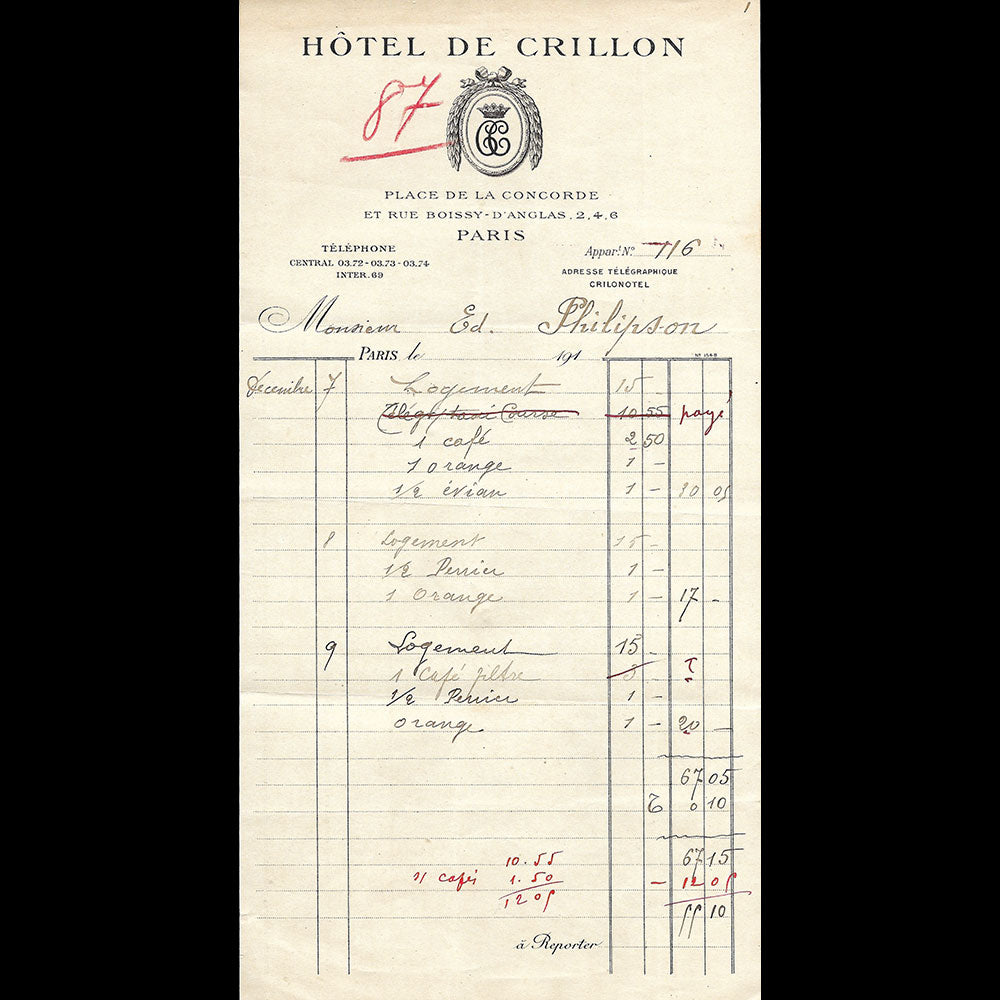 1
HÔTEL DE CRILLON
87
PLACE DE LA CONCORDE
ET RUE BOISSY-D'ANGLAS, 2, 4, 6
PARIS
TÉLÉPHONE
CENTRAL 03.72 - 03.73 - 03.74
INTER. 69
Appart. No. 116
ADRESSE TÉLÉGRAPHIQUE
CRILONOTEL
Monsieur Ed. Philipson
PARIS le 191
Décembre 7 Logement 15
Télég/taxi Course 10 55 payé
1 café 2 50
1 orange 1 -
1/2 évian 1 - 30 05
8 Logement 15 -
1/2 Perrier 1 -
1 Orange 1 - 17 -
9 Logement 15 -
1 Café filtre 3
1/2 Perrier 1 -
Orange 1 - 20 -
67 05
0 10
67 15
10.55
cafés 1.50 - 12 05
12 05
55 10
à Reporter